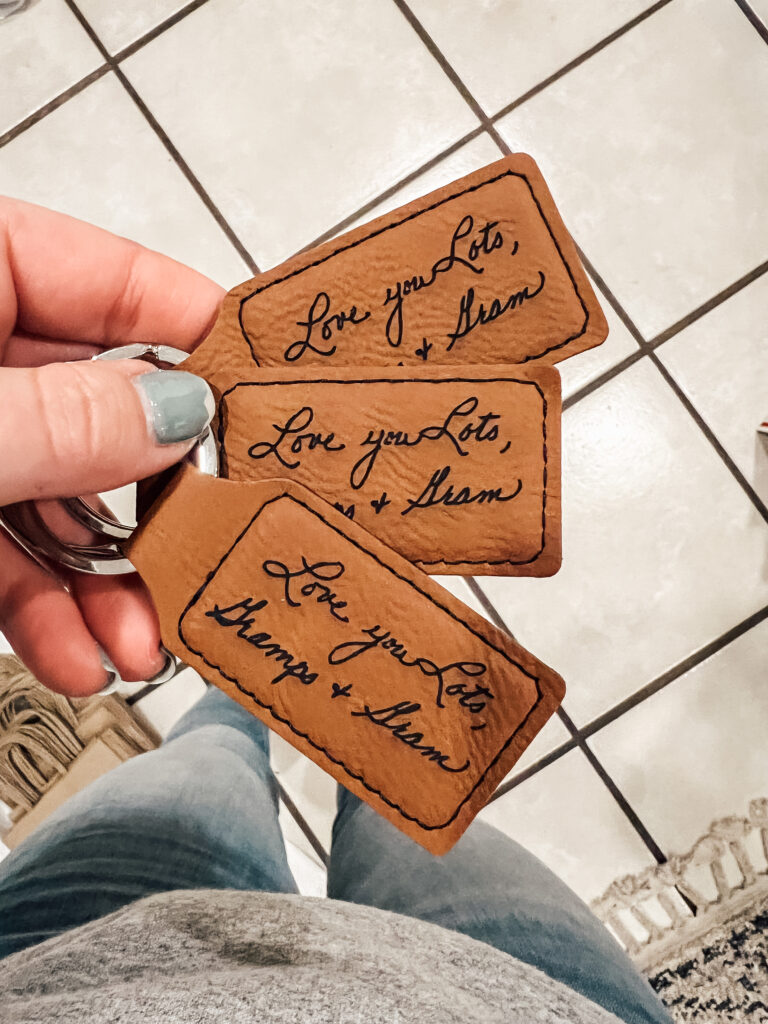 Love you Lots,
& Gram
Love you Lots,
ps & Gram
Love you Lots,
Gramps & Gram